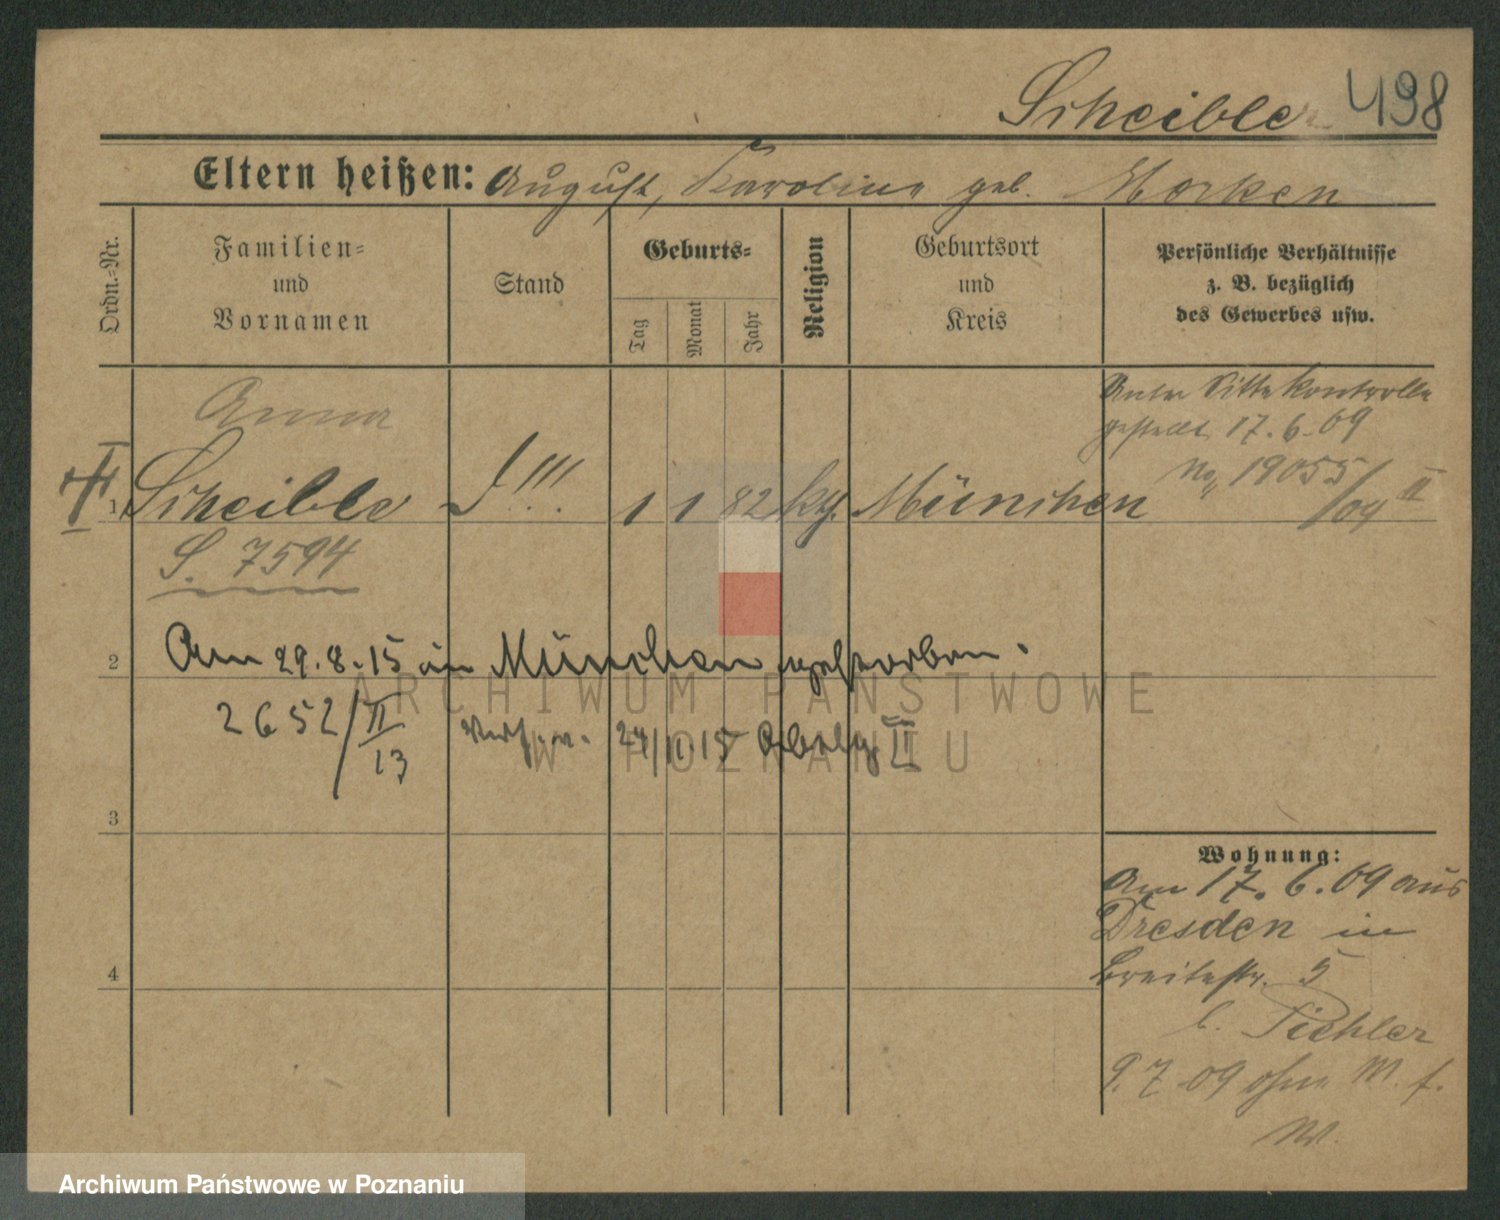 Scheible 498
Eltern heißen: August, Karoline geb. Morken
Ordn.-Nr.
Familien- und Vornamen
Stand
Geburts-
Tag
Monat
Jahr
Religion
Geburtsort und Kreis
Persönliche Verhältnisse z. B. bezüglich des Gewerbes usw.
Anna
Unter Sittenkontrolle
gestellt 17.6.09
1 Scheible 1 1 82 kth. München
19055/09 II
S. 7594
2
Am 29.8.15 in München gestorben.
2652/II
13
24/11 15 II
3
Wohnung:
Am 17.6.09 aus
Dresden in
Breitestr. 5
b. Pichler
4
9.7.09 ohne
W.
ARCHIWUM PAŃSTWOWE
W POZNANIU
Archiwum Państwowe w Poznaniu